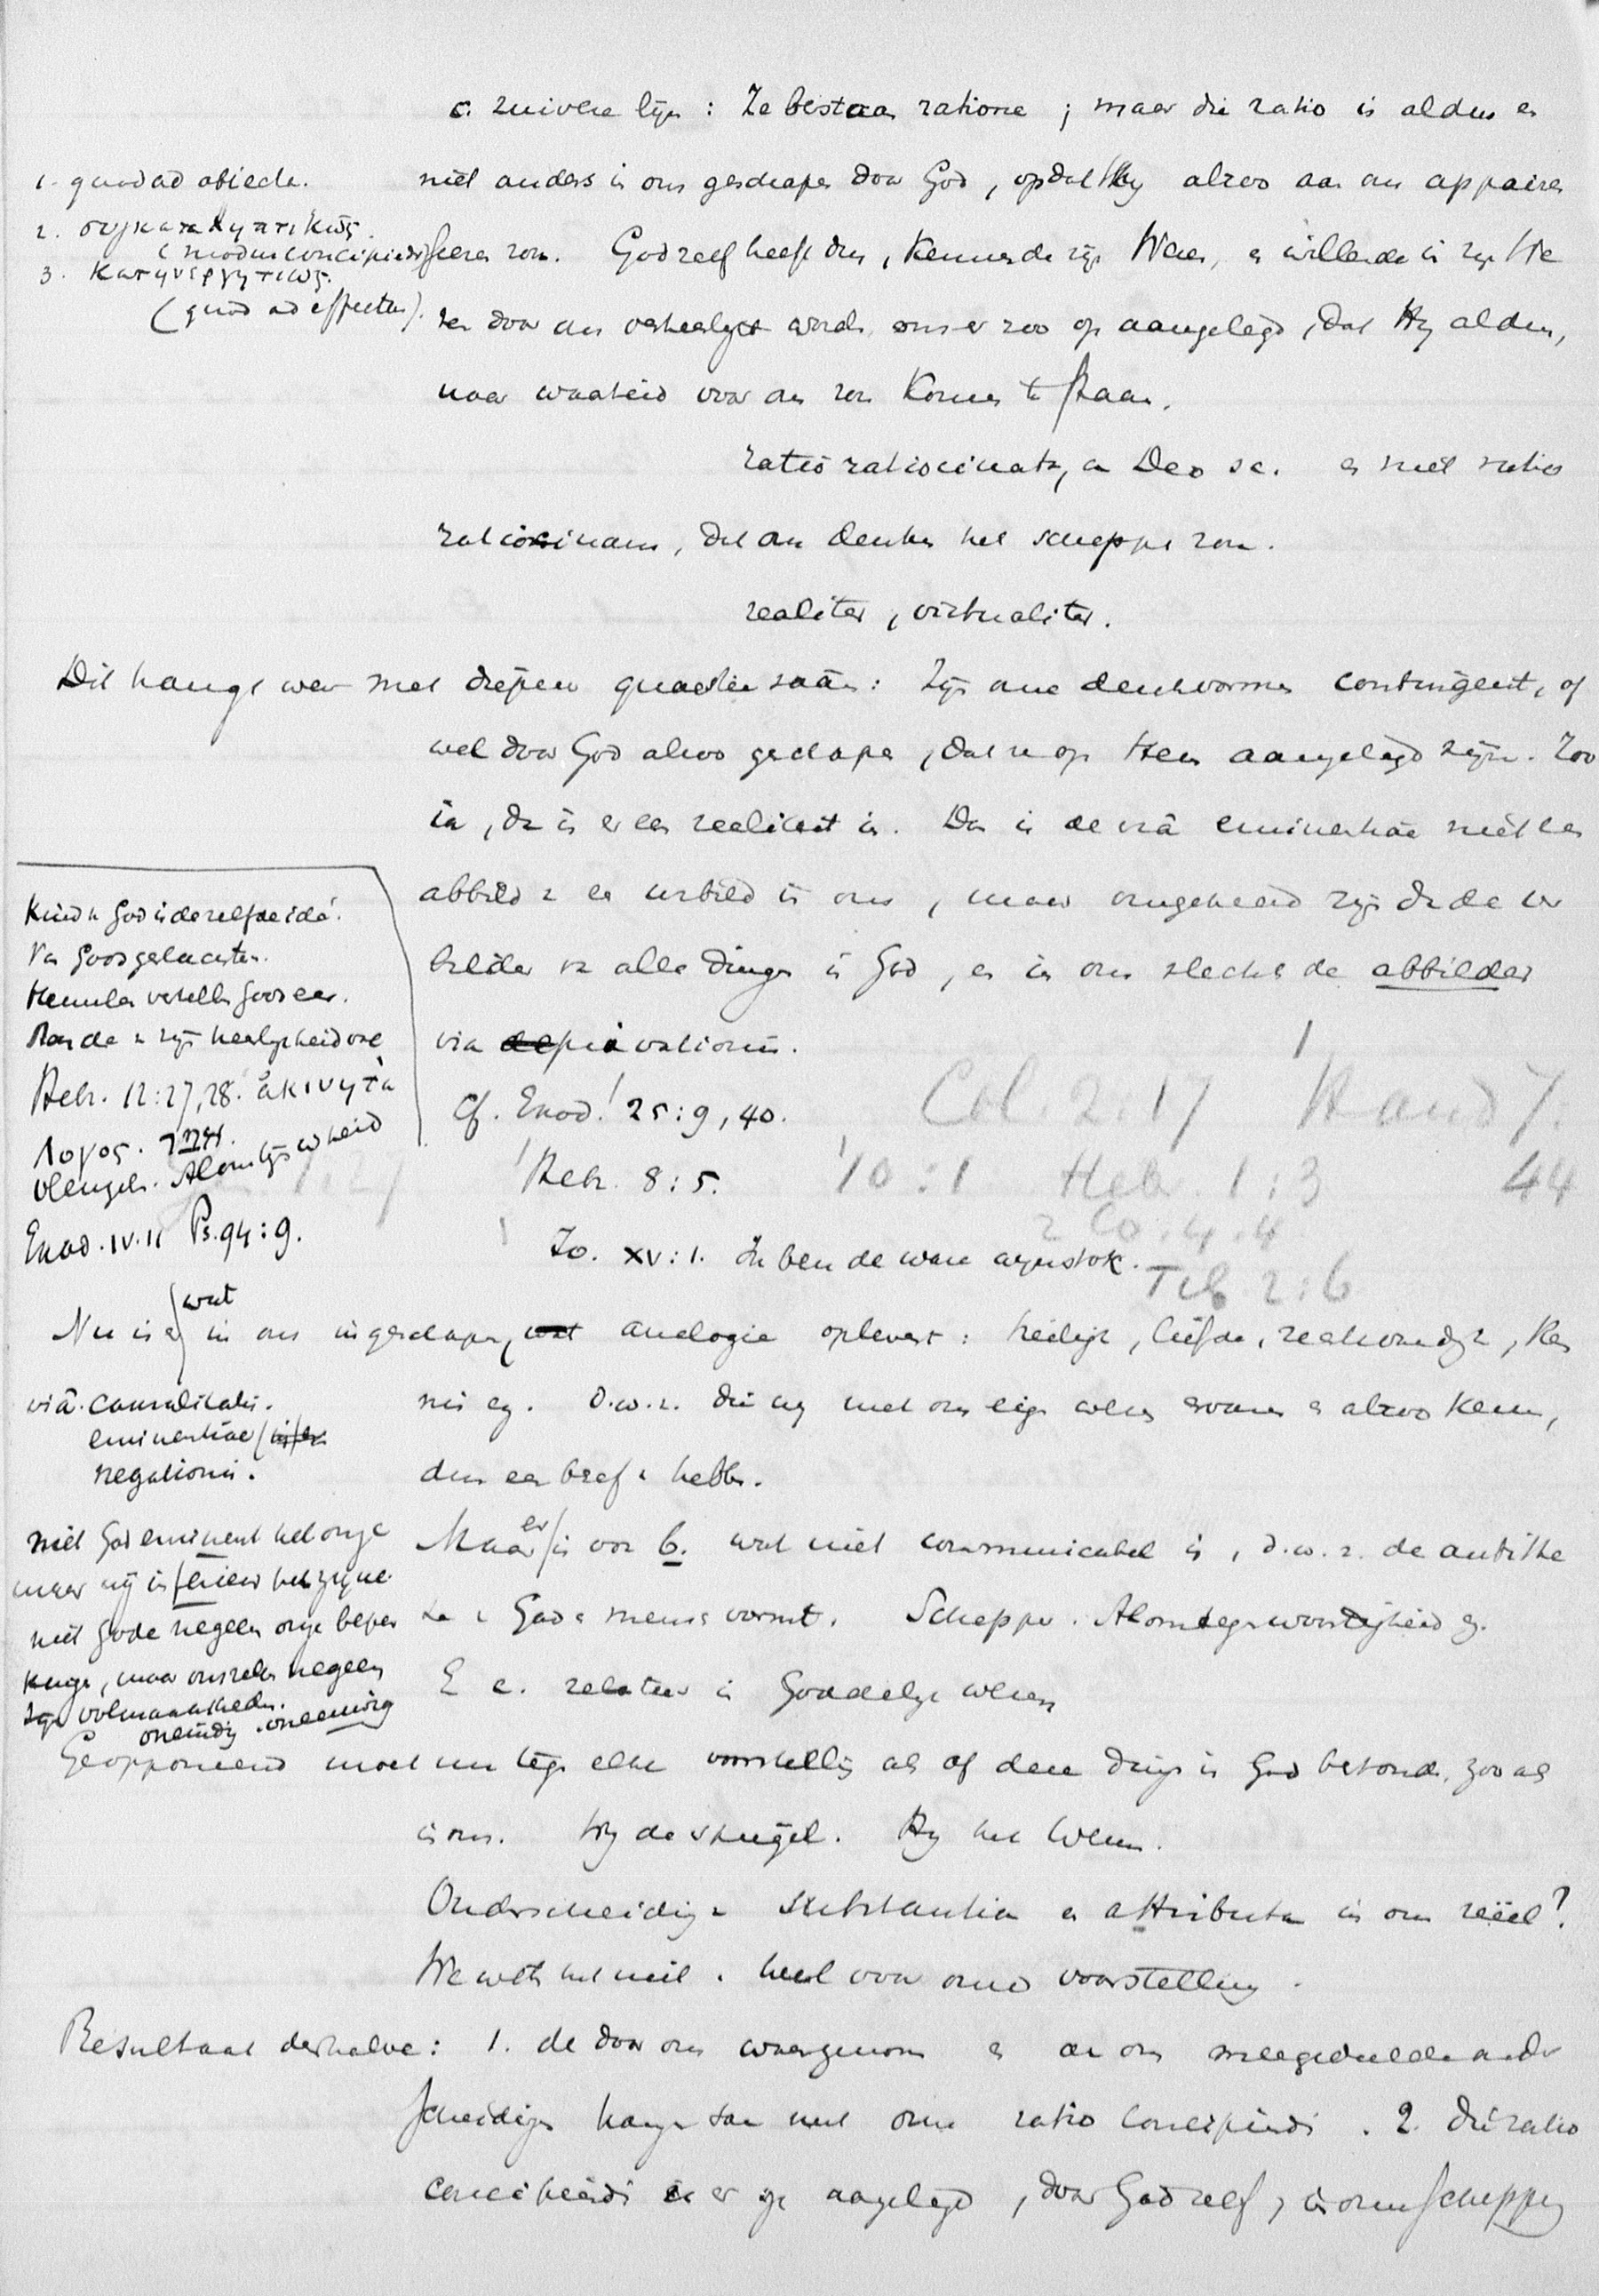 c. zuivere lijn : Ze bestaan ratione ; maar die ratio is aldus en
1. quod ad obiecta.
niet anders in ons geschapen door God, opdat Hy alzoo aan ons appaires
2. συγκαταληπτικῶς.
(modus concipiendi)
ceren zou. God zelf heeft dus, kennende zijn Wezen, en willende in zijn We
3. κατηνεργητικῶς.
(quod ad effectus).
zen door ons verheerlijkt worden, ons er zoo op aangelegd, dat Hy aldus,
naar waarheid voor ons zou komen te staan.
ratio ratiocinata, a Deo sc. en niet ratio
ratiocinans, dat ons denken het scheppen zou.
realiter, virtualiter.
Dit hangt weer met diepere quaestie saam : Zijn onze denkvormen contingent, of
wel door God alzoo geschapen, dat ze op Hem aangelegd zijn. Zoo
ja, dan is er een realiteit in. Dan is de viâ eminentiae niet een
abbild v. een urbild in ons, maar omgekeerd zijn de
beelden van alle dingen in God, en in ons slechts de abbilder
via privationis.
Kind v. God is dezelfde idé.
Van Gods geslachten.
Hemelen vertellen Gods eer.
Aarde v. zijn heerlijkheid vol
Hebr. 12:27, 28. ἀκινητὰ
Λογος.
vleugels. Alomtegenwheid
Exod. IV. 11 Ps. 94 : 9.
Cf. Exod. 25 : 9, 40.
Col. 2:17 Hand 7.
44
Hebr. 8 : 5.
10 : 1 Heb. 1 : 3
2 Co. 4. 4
Jo. XV : 1. Ik ben de ware wijnstok.
2 : 6
Nu is er wat in ons ingeschapen, wat analogie oplevert : heiligh, liefde, rechtvaardigh, Ken
nis eg. D.w.z. die wy met ons eigen wezen ervaren en alzoo kennen,
dus een besef v. hebben.
viâ causalitatis.
eminentiae
negationis.
Maar er is voor b. wat niet communicabel is, d.w.z. de antithe
se v. God en mensch vormt. Schepper. Alomtegenwoordigheid eg.
E c. relatien in Goddelijk wezen
niet God eminent het onze
maar wij inferieur het zijne
niet Gode negeeren onze beper
kingen, maar onszelven negeeren
Zijn volmaaktheden.
oneindig. oneeuwig
Geopponeerd moet nu tegen elke voorstelling als of deze dingen in God bestonden, zooals
in ons. Wy de spiegel. Hy het Wezen.
Onderscheiding v. substantia en attributa in ons reëel?
We weten het niet. heel voor onze voorstelling.
Resultaat derhalve : 1. de door ons waargenomen en aan ons meegedeelde onder
scheidingen hangen saam met onze ratio concipiendi. 2. die ratio
concipiendi is er op aangelegd, door God zelf, in onze schepping